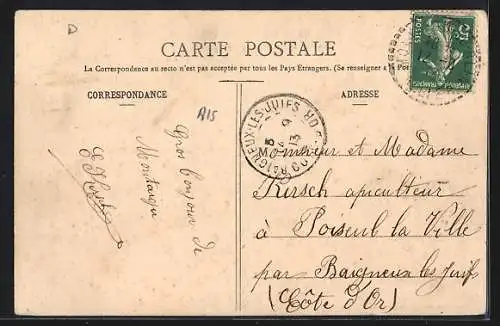 D
CARTE POSTALE
La Correspondance au recto n'est pas acceptée par tous les Pays Etrangers. (Se renseigner à
CORRESPONDANCE
ADRESSE
A15
Gros bonjour de
Montaigu
BAIGNEUX-LES-JUIFS
5c
POSTES
Monsieur et Madame
Kirsch apiculteur
à Poiseul la Ville
par Baigneux les Juifs
(Côte d'Or)